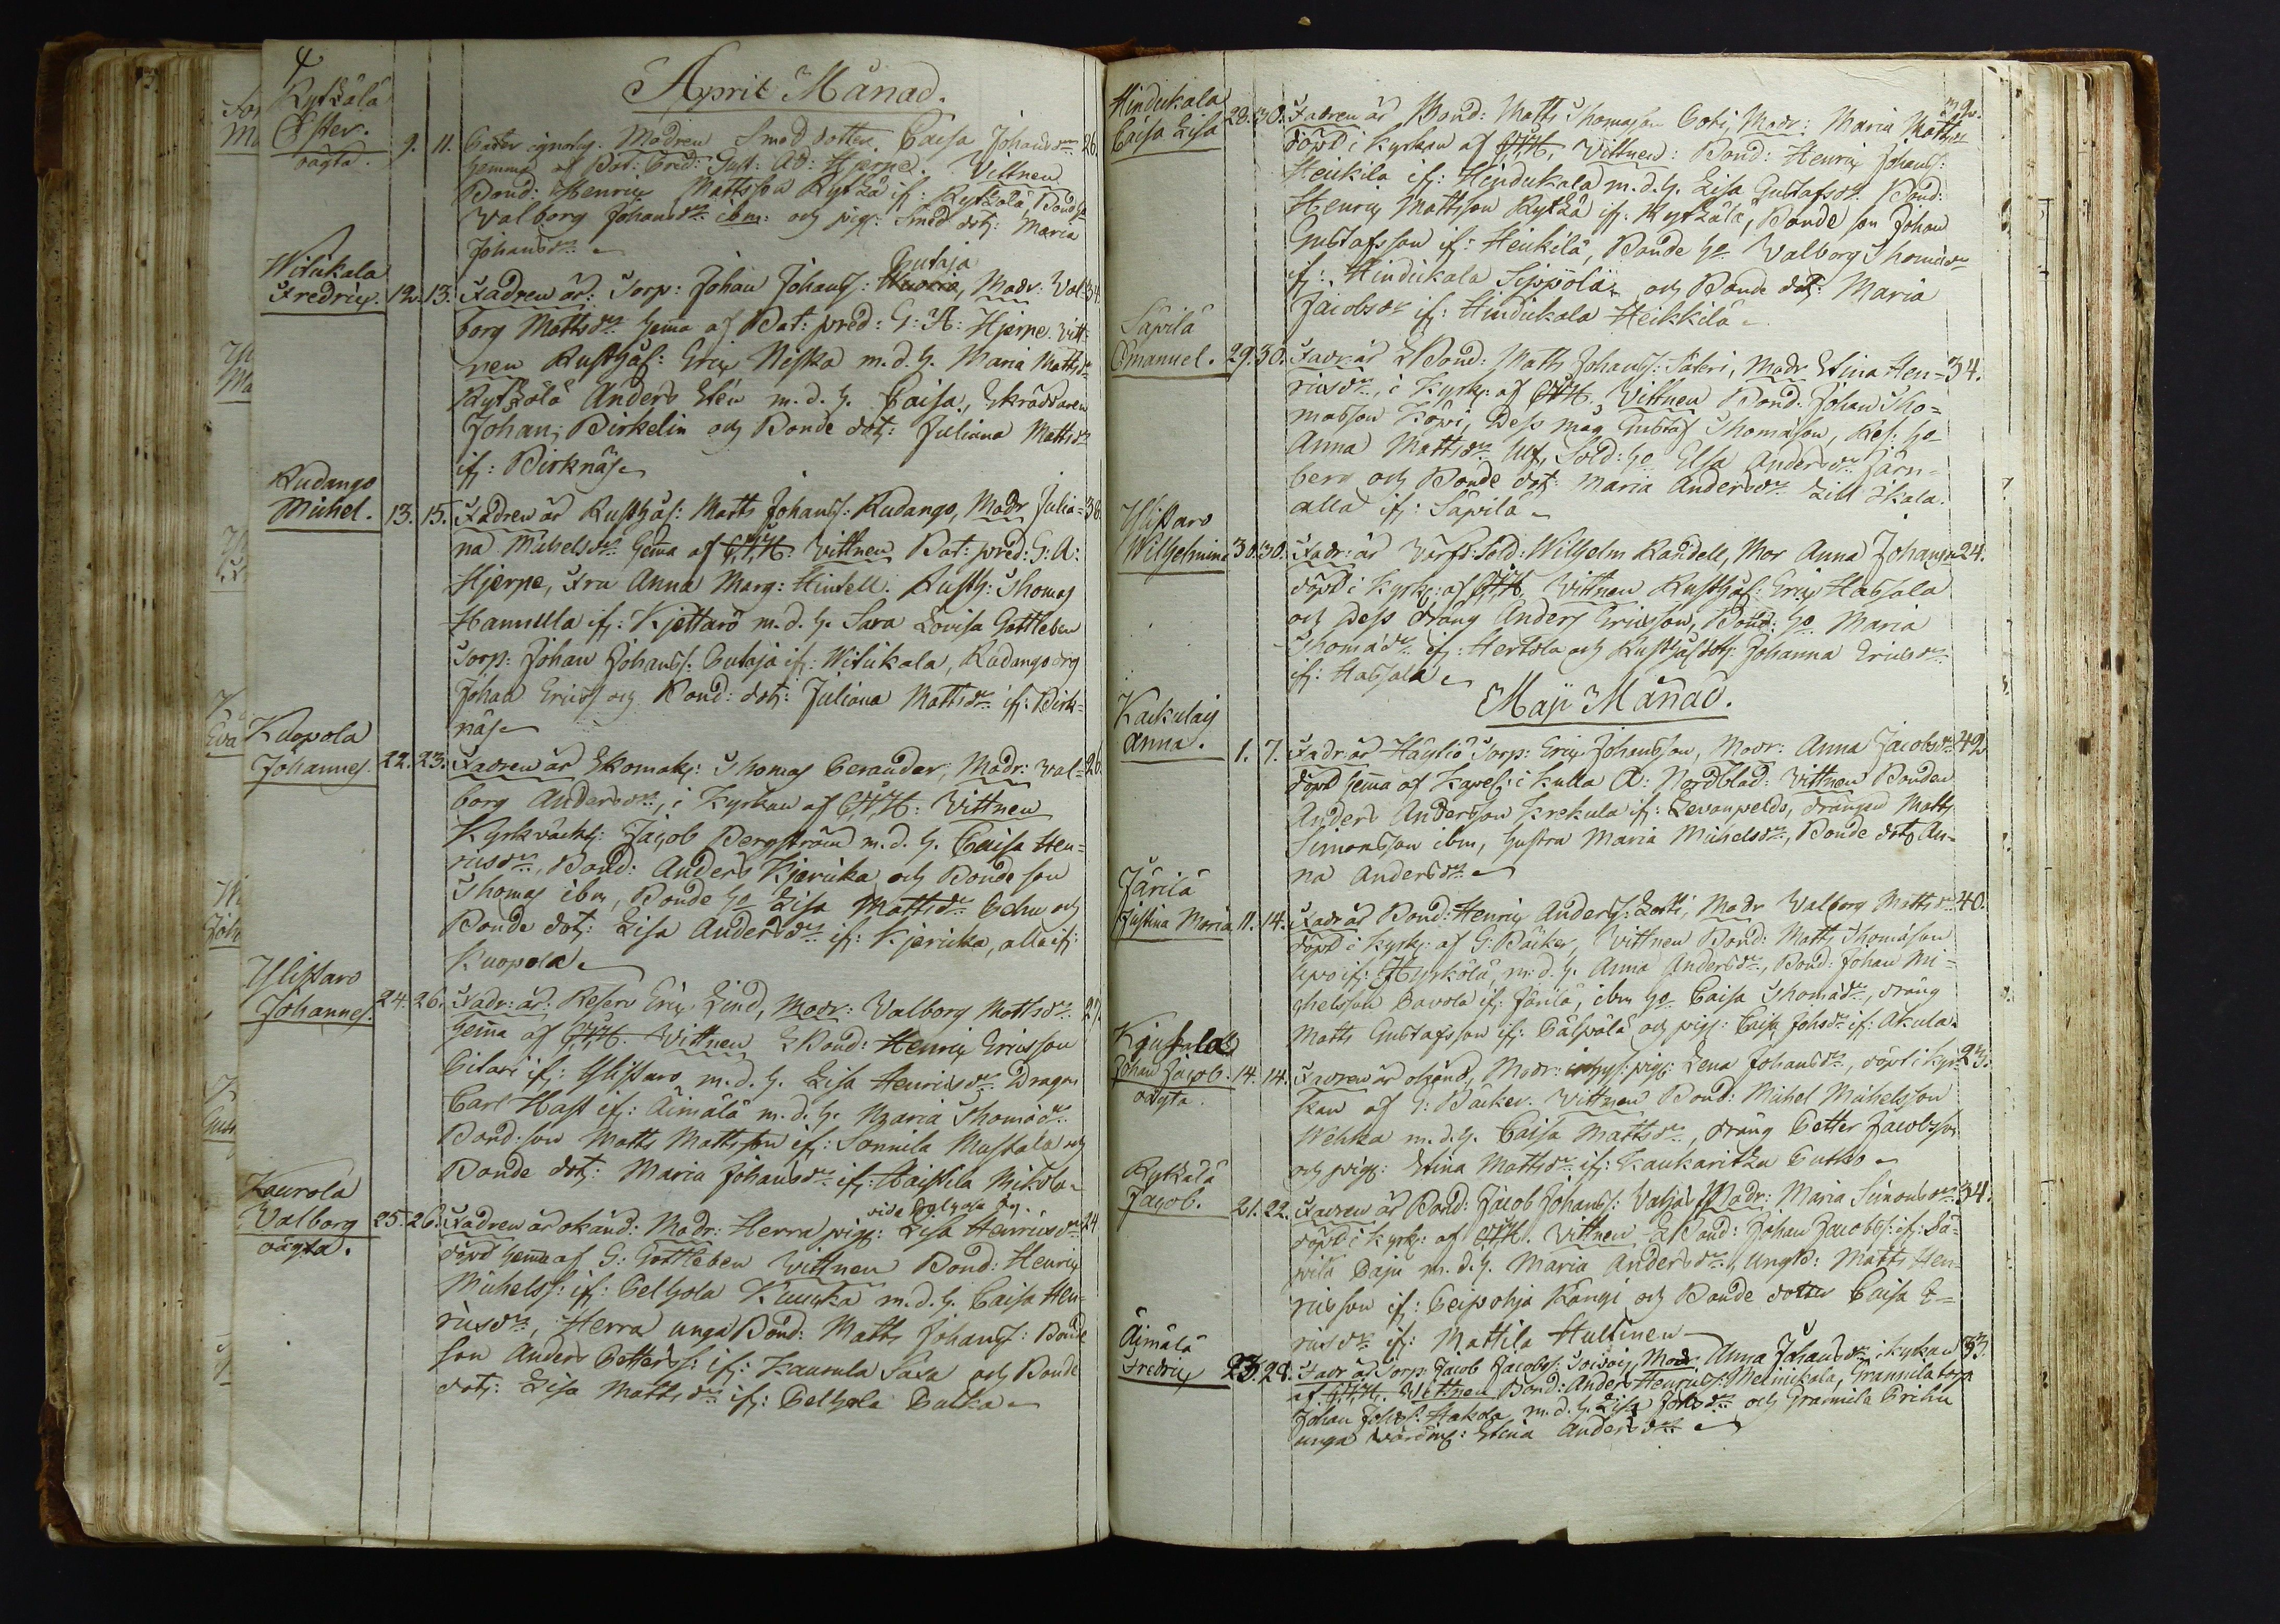 4
April Månad.
Kytkälä
Ester. 9. 11. Pater ignoty. Modren Smed dotter Caisa Johansdr 26.
oägta. hemma af Bat: Pred: Gust: Ad: Hjerpe. Vittnen
Bond: Henric Mattsson Kytkä if: Kytkälä, Bond ho
Valborg Johansdr: ibm: och pig: Smed dotr: Maria
Johansdr:
Witikala
Fredric. 12. 13. Fadren är: Torp: Johan Johanss: Putaja, Modr: Val= 34.
borg Mattsdr: hema af Bat: pred: G: A: Hjerpe. Vitt-
nen Rusthål: Eric Niska m. d. h. Maria Mattsdr
Kytkälä Anders Elén m. d. h. Caisa, Skräddaren
Johan Birkelin och Bonde dotr: Juliana Mattsdr
if: Birknäs
Rudango
Michel. 13. 15. Fadren är Rusthål: Matts Johanss: Rudango, Modr Julia= 38.
na Michelsdr: hema af Vittnen Bat: pred: G: A:
Hjerpe, Fru Anna Marg: Hintell. Rusth: Thomas
Hannula if: Kjettarö m. d. h. Sara Lovisa Gottleben
Torp: Johan Johanss: Putaja if: Witikala, Rudango drg
Johan Ericss och Bond: dotr: Juliana Mattsdr: if: Birk-
näs
Kuopola
Johannes. 22. 23. Fadren är Skomak: Thomas Cerander, Modr: Val= 26.
borg Andersdr:, i Kyrkan af Vittnen
Kyrkväckt: Jacob Bergström m. d. h. Caisa Hen=
ricsdr:, Bond: Anders Kjericka och Bonde son
Thomas ibm, Bonde ho Lisa Mattsdr: och
Bonde dotr: Lisa Andersdr: if: Kjericka, alla if:
Kuopola
Ylistaro
Johannes. 24. 26. Fadr: är Reserv Eric Lind, Modr: Valborg Mattsdr: 27.
hema af Vittnen Bond: Henric Ericsson
Pitari if: Ylistaro m. d. h. Lisa Henricsdr: Dragon
Carl Hast if: Äimälä m. d. h. Maria Thomadr:
Bond: son Matts Mattsson if: Sonnila Mustala och
Bonde dotr: Maria Johansdr: if: Haistila Mikola
Kaurola
Valborg 25. 26. Fadren är okänd. Modr: Herra pig: Lisa Henricsdr: 24
oägta. döpt hema af G: Gottleben Vittnen Bond: Henric
Michelss: if: Pelhola Kuucka m. d. h. Caisa Hen-
ricsdr:, Herra unga Bond: Matts Johanss: Bonde
son Anders Petterss: if: Kaurula Saxa och Bonde
dotr: Lisa Mattsdr: if: Pelhola Pulka
Hindickala
Caisa Lisa 28. 30. Fadren är Bond: Matts Thomasson Coti, Modr: Maria Mattsdr 32.
döpt i Kyrkan af Vittnen: Bond: Henric Johanss:
Heickila if: Hindickala m. d. h. Lisa Gustafsdr: Bond:
Henric Mattsson Kytkä if: Kytkälä, Bonde son Johan
Gustafsson if: Heickilä, Bonde ho Valborg Thomasdr
if: Hindickala Seppölä, och Bonde dotr: Maria
Jacobsdr if: Hindickala Heikkilä
Säpilä
Emanuel. 29. 30. Fadr: är Bond: Matts Johanss: Säteri, Modr Stina Hen- 34.
ricsdr:, i Kyrk: af Vittnen Bond: Johan Tho=
masson Köpi, Dess måg Gustaf Thomason, Res: ho
Anna Mattsdr: Ulf, Sold: ho Elsa Andersdr: Järn-
berg och Bonde dotr: Maria Andersdr: Lill Ikala.
alla if: Säpilä
Ylistaro
Wilhelmina 30. 30. Fadr: är Värf: Sold: Wilhelm Randell, Mor Anna Johansdr 24.
döpt i Kyrk: af Vittnen Rusthål: Eric Hassala
och Dess dräng Anders Ericsson, Bond: ho Maria
Thomasdr: if: Hertola och Rusthålsdotr: Johanna Ericsdr:
if: Hassala
Maji Månad.
Kackulais
Anna. 1. 7. Fadr: är Häyliö Torp: Eric Johansson, Modr: Anna Jacobsdr: 42
döpt hema af Kapel: i Kulla A: Nordblad: Vittnen Bonden
Anders Andersson Krekula if: Levanpeldo, drängen Matts
Simonsson ibm, Hustru Maria Michelsdr:, Bonde dotr An-
na Andersdr:
Järilä
Justina Maria 11. 14. Fadr: är Bond: Henric Anderss: Losti, Modr Valborg Mattsdr: 40.
döpt i Kyrk: af G: Bäcker, Vittnen Bond: Matts Thomason
Upo if: Hyrkölä, m. d. h. Anna Andersdr:, Bond: Johan Mi-
chelsson Pavola if: Järilä, ibm ho Caisa Thomadr:, dräng
Matts Gustafsson if: Pälpälä och pig: Caisa Johsdr: if: Akula.
Kjustala
Johan Jacob. 14. 14. Fadren är okänd, Modr: inhys: pig: Lena Johansdr:, döpt i Kyr- 23.
oägta. kan af G: Bäcker. Vittnen Bond: Michel Michelsson
Wehka m. d. h. Caisa Mattsdr:, dräng Petter Jacobsson
och pig: Stina Mattsdr: if: Kaukaritza Putko
Kytkälä
Jacob. 21. 22. Fadren är Bond: Jacob Johanss: Valja, Modr: Maria Simonsdr: 34.
döpt i Kyrk: af Vittnen Bond: Johan Jacobss: if: Sä-
pilä Paju m. d. h. Maria Andersdr:, ung B: Matts Hen-
ricsson if: Peipohja Kangi och Bonde dotter Caisa E-
ricsdr: if: Mattila Hullinen
Äimälä
Fredric 23. 28. Fadr: är Torp: Jacob Jacobss: Soivoi, Modr: Anna Johansdr: i Kyrkan 33.
af Vittnen Bond: Anders Henricss: Melinikala, Grannila torp
Johan Johss: Hakola, m. d. h. Lisa Johsdr: och Grannila Prihu
unga värdin: Stina Andersdr: